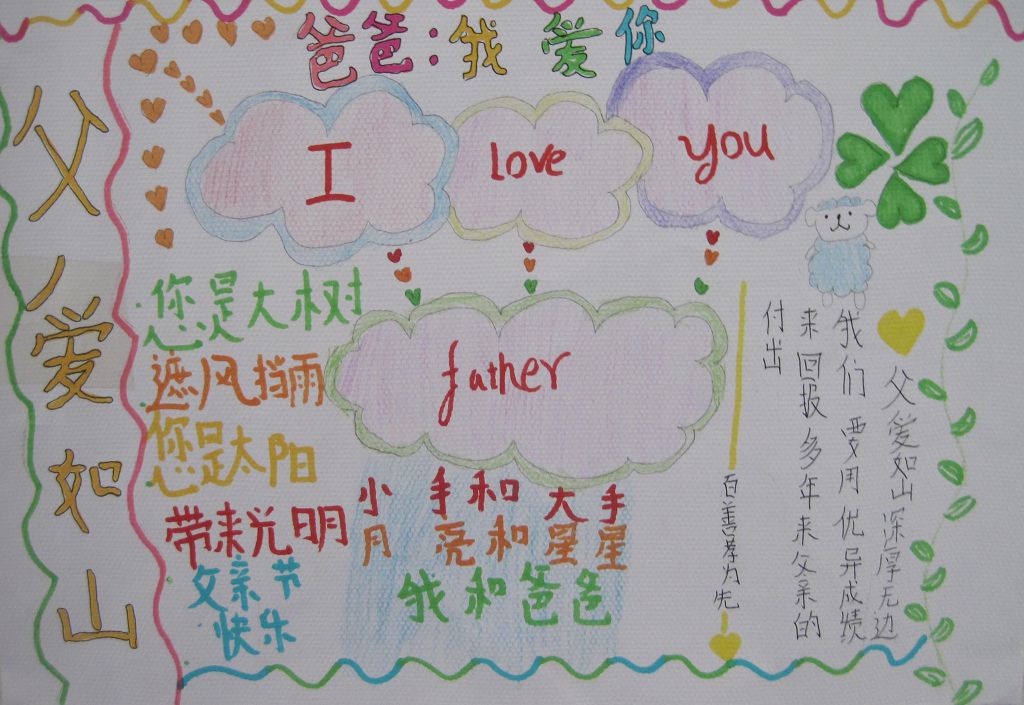 爸爸:我爱你
父爱如山
I love you
father
您是大树
遮风挡雨
您是太阳
带来光明
父亲节
快乐
小手和大手
月亮和星星
我和爸爸
百善孝为先
父爱如山深厚无边
我们要用优异成绩
来回报多年来父亲的
付出